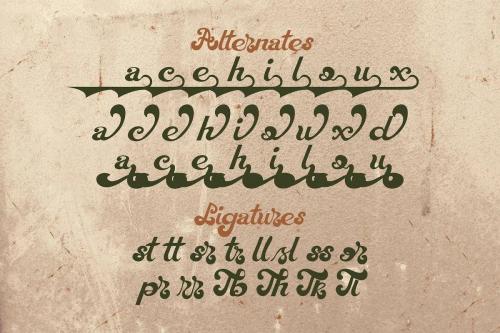 Alternates
a c e h i l o u x
a c e h i l o u x d
a c e h i l o u
Ligatures
st tt sr tr ll sl ss or
pr rr Tb Th Tk Tl